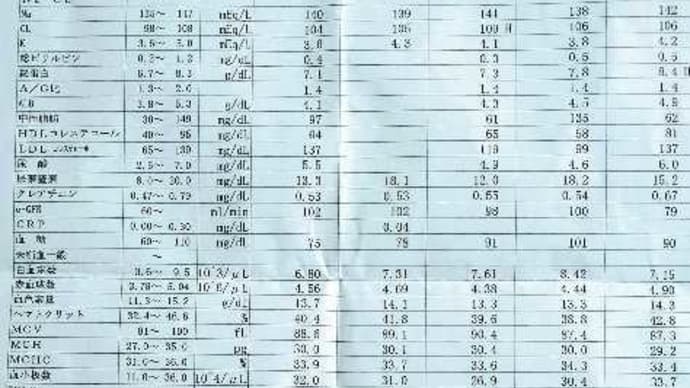 Na 135～ 147 mEq/L 140 139 141 138 142
CL 98～ 108 mEq/L 104 105 109 H 106 106
K 3.5～ 5.0 mEq/L 3.6 4.3 4.1 3.8 4.2
総ビリルビン 0.2～ 1.2 mg/dL 0.4 0.3 0.5 0.5
総蛋白 6.7～ 8.3 g/dL 7.1 7.3 7.8 8.4 H
A/G比 1.3～ 2.0 1.4 1.4 1.4 1.4
g/dL 4.1 4.3 4.5 4.9
中性脂肪 30～ 149 mg/dL 97 61 135 62
HDLコレステロール 40～ 95 mg/dL 64 65 58 81
LDLコレステロール 65～ 139 mg/dL 137 99 137
尿酸 2.5～ 7.0 mg/dL 5.5 4.9 4.6 6.0
尿素窒素 8.0～ 20.0 mg/dL 13.3 18.1 12.0 18.2 15.2
クレアチニン 0.47～ 0.79 mg/dL 0.53 0.53 0.55 0.54 0.67
e-GFR 60～ ml/min 102 102 98 100 79
CRP 0.00～ 0.30 mg/dL 0.04
血糖 60～ 110 mg/dL 75 78 91 101 90
末梢血一般 ～
白血球数 3.5～ 9.5 10^3/μL 6.80 7.31 7.61 8.42 7.15
赤血球数 3.76～ 5.04 10^6/μL 4.56 4.69 4.38 4.44 4.90
血色素量 11.3～ 15.2 g/dL 13.7 14.1 13.3 13.3 14.3
ヘマトクリット 32.4～ 46.6 % 40.4 41.8 39.6 38.8 42.8
MCV 81～ 100 fL 88.6 89.1 90.4 87.4 87.3
MCH 27.0～ 35.0 pg 30.0 30.1 30.4 30.0 29.2
MCHC 31.0～ 36.0 % 33.9 33.7 33.6 34.3 33.4
血小板数 11.0～ 36.0 10^4/μL 32.0 31.0 26.9 30.4 33.7